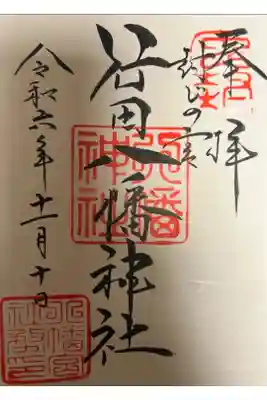 奉拝
封じの宮
行田八幡神社
八幡神社
令和六年十一月十日